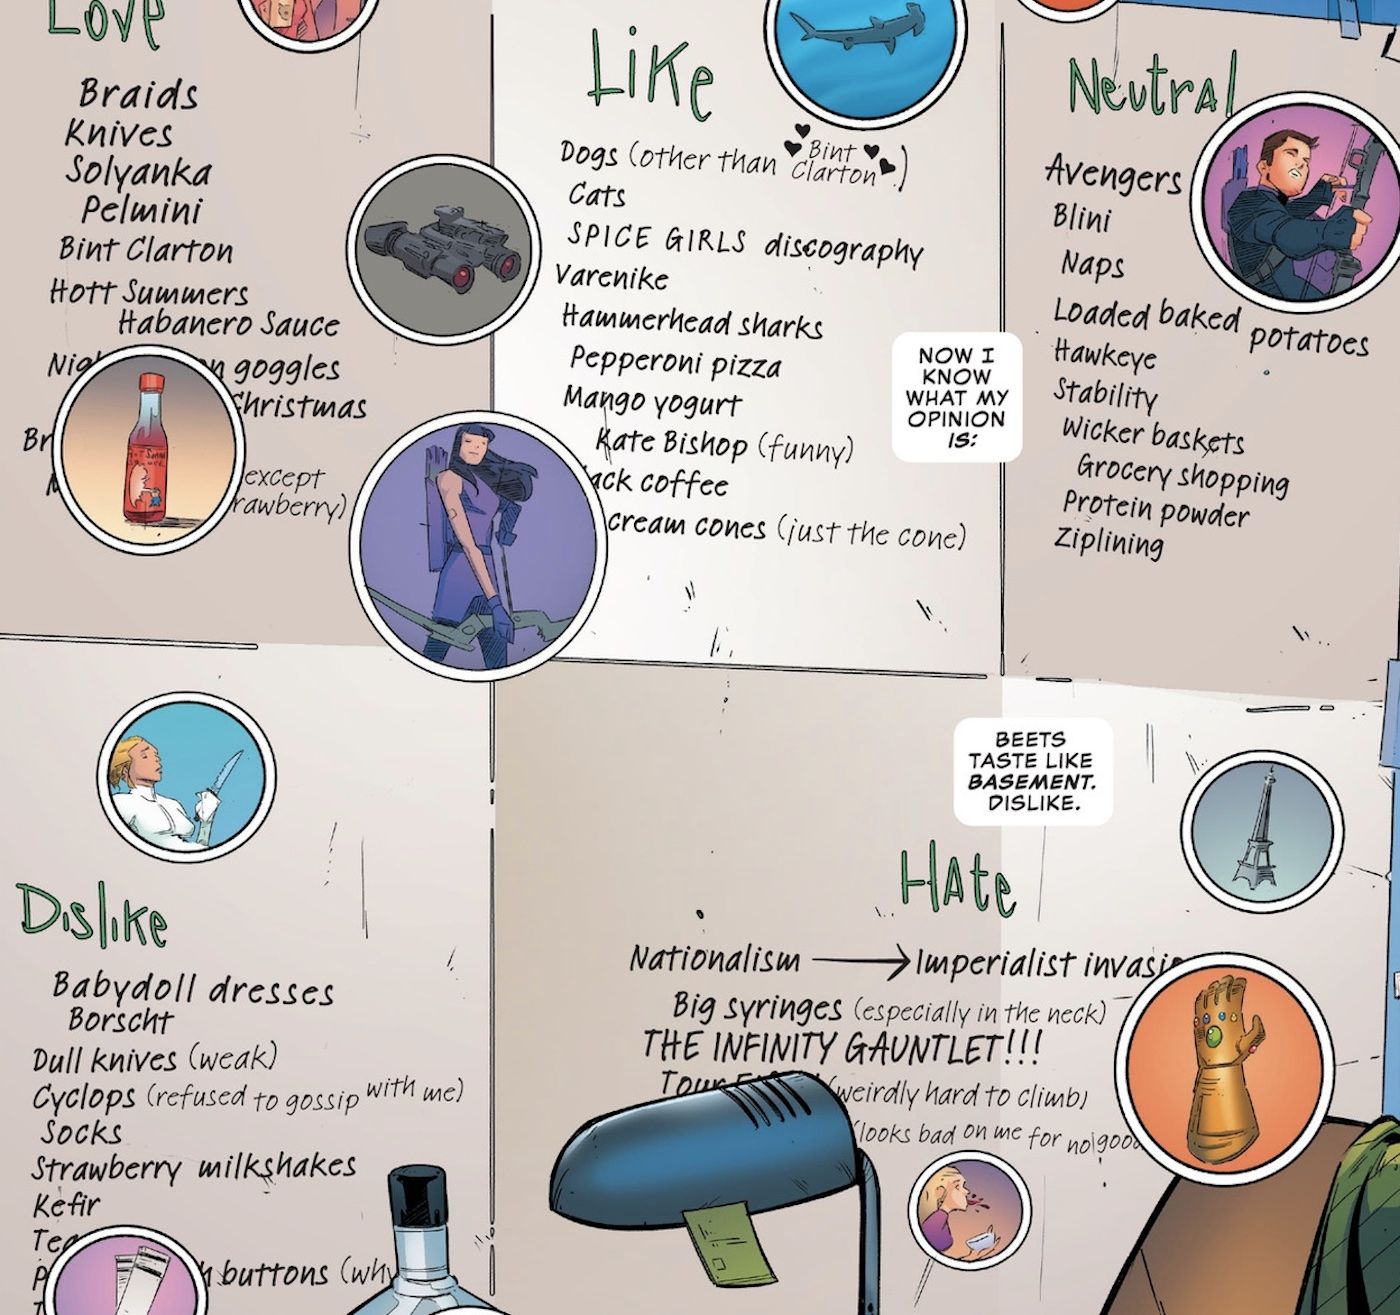 Love
Braids
Knives
Solyanka
Pelmini
Bint Clarton
Hott Summers
Habanero Sauce
goggles
Christmas
(except
LiKe
Dogs (other than Bint Clarton.)
Cats
SPICE GIRLS discography
Varenike
Hammerhead sharks
Pepperoni pizza
Mango yogurt
Kate Bishop (funny)
coffee
cream cones (just the cone)
NOW I
KNOW
WHAT MY
OPINION
IS:
Neutral
Avengers
Blini
Naps
Loaded baked potatoes
Hawkeye
Stability
Wicker baskets
Grocery shopping
Protein powder
Ziplining
Dislike
Babydoll dresses
Borscht
Dull knives (weak)
Cyclops (refused to gossip with me)
Socks
Strawberry milkshakes
Kefir
buttons (why
BEETS
TASTE LIKE
BASEMENT.
DISLIKE.
HAte
Nationalism → Imperialist
Big syringes (especially in the neck)
THE INFINITY GAUNTLET!!!
(weirdly hard to climb)
(looks bad on me for no good